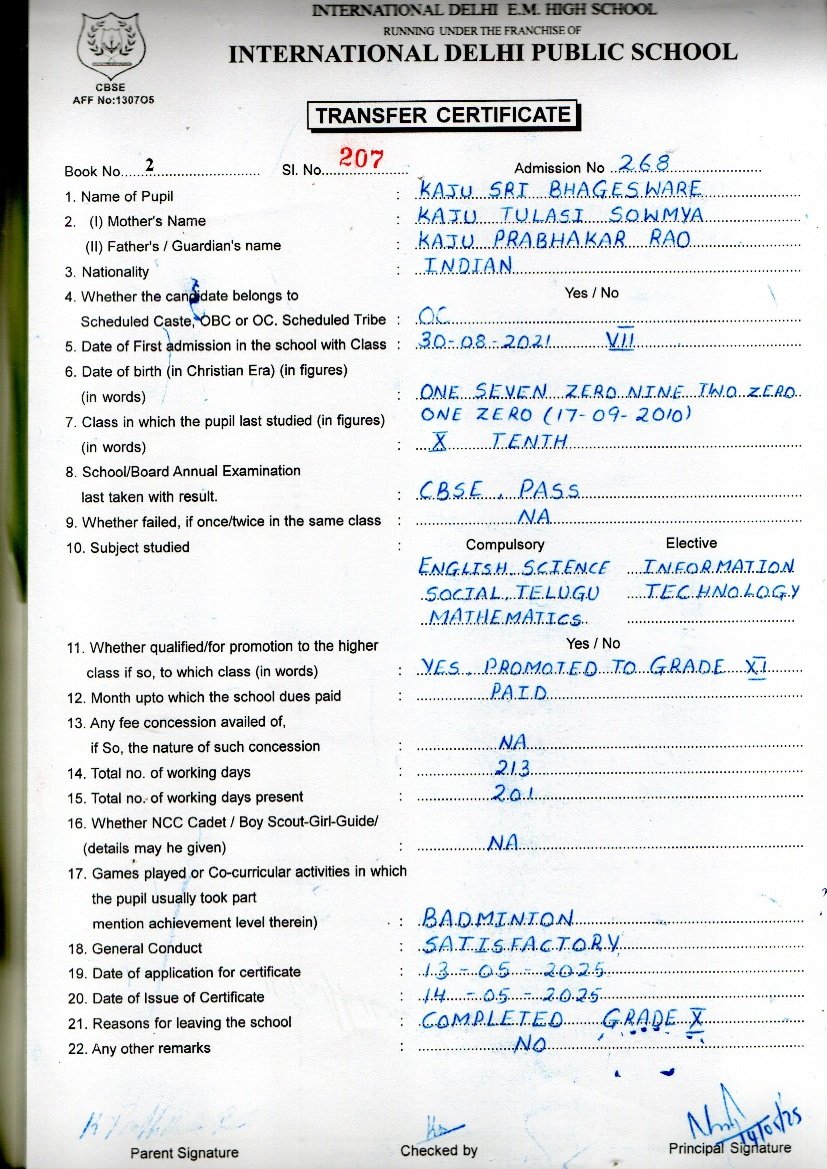 INTERNATIONAL DELHI E.M. HIGH SCHOOL
RUNNING UNDER THE FRANCHISE OF
INTERNATIONAL DELHI PUBLIC SCHOOL
CBSE
AFF No:130705
TRANSFER CERTIFICATE
Book No. 2 Sl. No. 207 Admission No 268
1. Name of Pupil : KAJU SRI BHAGESWARE
2. (I) Mother's Name : KAJU TULASI SOWMYA
(II) Father's / Guardian's name : KAJU PRABHAKAR RAO
3. Nationality : INDIAN
4. Whether the candidate belongs to Yes / No
Scheduled Caste, OBC or OC. Scheduled Tribe : OC
5. Date of First admission in the school with Class : 30-08-2021 VII
6. Date of birth (in Christian Era) (in figures)
(in words) : ONE SEVEN ZERO NINE TWO ZERO
7. Class in which the pupil last studied (in figures) ONE ZERO (17-09-2010)
(in words) : X TENTH
8. School/Board Annual Examination
last taken with result. : CBSE, PASS
9. Whether failed, if once/twice in the same class : NA
10. Subject studied : Compulsory Elective
ENGLISH, SCIENCE INFORMATION
SOCIAL, TELUGU TECHNOLOGY
MATHEMATICS
11. Whether qualified/for promotion to the higher Yes / No
class if so, to which class (in words) : YES, PROMOTED TO GRADE XI
12. Month upto which the school dues paid : PAID
13. Any fee concession availed of,
if So, the nature of such concession : NA
14. Total no. of working days : 213
15. Total no. of working days present : 201
16. Whether NCC Cadet / Boy Scout-Girl-Guide/
(details may he given) : NA
17. Games played or Co-curricular activities in which
the pupil usually took part
mention achievement level therein) : BADMINTON
18. General Conduct : SATISFACTORY
19. Date of application for certificate : 13-05-2025
20. Date of Issue of Certificate : 14-05-2025
21. Reasons for leaving the school : COMPLETED GRADE X
22. Any other remarks : NO
14/05/25
Parent Signature Checked by Principal Signature